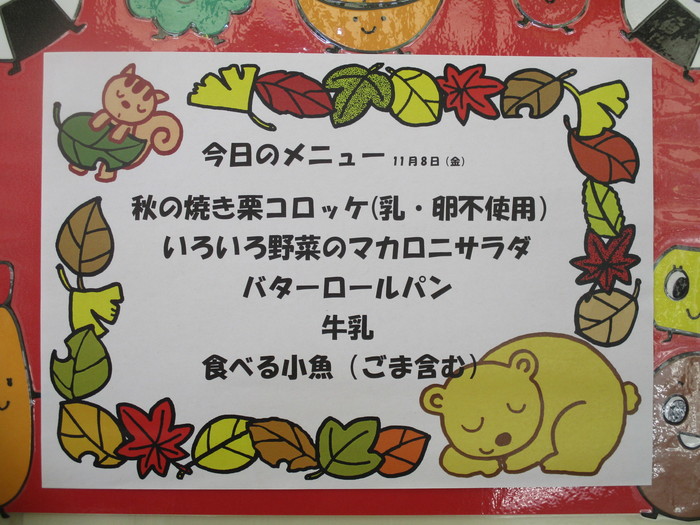 今日のメニュー 11月8日(金)
秋の焼き栗コロッケ(乳・卵不使用)
いろいろ野菜のマカロニサラダ
バターロールパン
牛乳
食べる小魚(ごま含む)